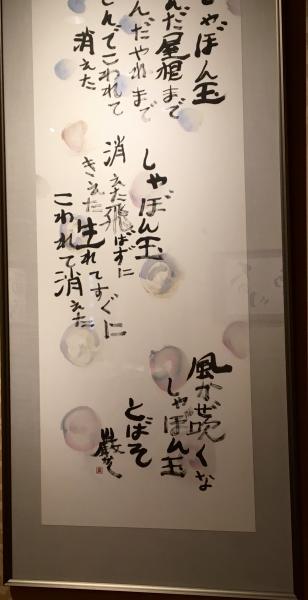 しゃぼん玉
んだ屋根まで
んだやねまで
んでこわれて
消えた
しゃぼん玉
消えた飛ばずに
きえた生れてすぐに
こわれて消えた
風かぜ吹くな
しゃぼん玉
とばそ